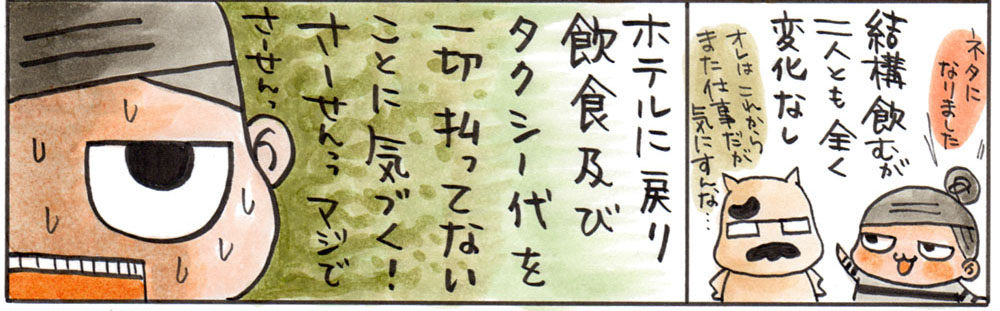 ネタに
なりました
結構飲むが
二人とも全く
変化なし
オレはこれから
また仕事だが
気にすんな…
ホテルに戻り
飲食及び
タクシー代を
一切払ってない
ことに気づく!
さーせんっマジで
さーせんっ